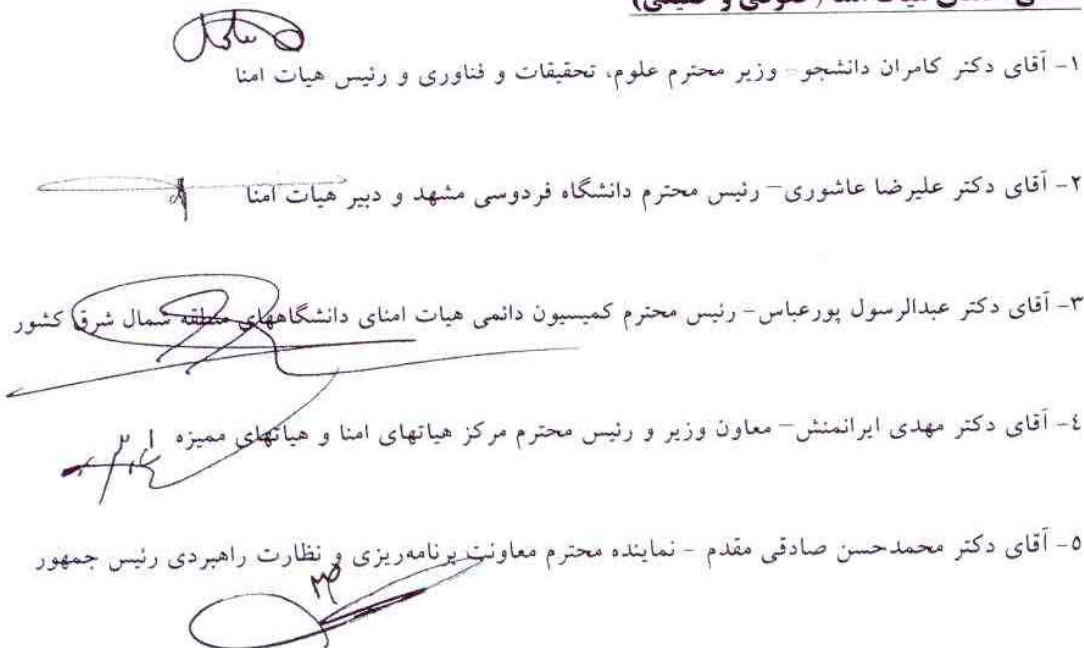 هیات امنا (حقوقی و حقیقی)
۱- آقای دکتر کامران دانشجو- وزیر محترم علوم، تحقیقات و فناوری و رئیس هیات امنا
۲- آقای دکتر علیرضا عاشوری- رئیس محترم دانشگاه فردوسی مشهد و دبیر هیات امنا
۳- آقای دکتر عبدالرسول پورعباس- رئیس محترم کمیسیون دائمی هیات امنای دانشگاههای منطقه شمال شرق کشور
٤- آقای دکتر مهدی ایرانمنش- معاون وزیر و رئیس محترم مرکز هیاتهای امنا و هیاتهای ممیزه
٥- آقای دکتر محمدحسن صادقی مقدم - نماینده محترم معاونت برنامه‌ریزی و نظارت راهبردی رئیس جمهور